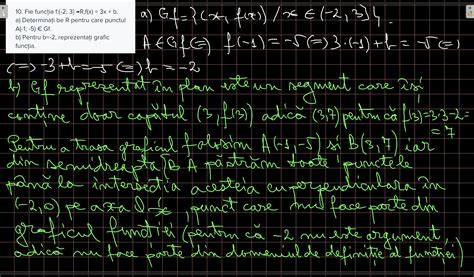 10. Fie funcția f:(-2; 3] →R,f(x) = 3x + b.
a) Determinați be R pentru care punctul
A(-1; -5) ∈ Gf.
b) Pentru b=-2, reprezentați grafic
funcția.
a) Gf = {(x, f(x)) / x ∈ (-2, 3]}.
A ∈ Gf (=) f(-1) = -5 (=) 3·(-1)+b = -5 (=)
(=) -3+b = -5 (=) b = -2
b) Gf reprezentat în plan este un segment care își
conține doar capătul (3, f(3)) adică (3,7) pentru că f(3)=3·3-2=
= 7
Pentru a trasa graficul folosim A(-1,-5) și B(3,7) iar
din semidreapta [BA păstrăm toate punctele
până la intersecția acesteia cu perpendiculara în
(-2,0) pe axa punct care nu face parte din
graficul funcției (pentru că -2 nu este argument,
adică nu face parte din domeniul de definiție al funcției)